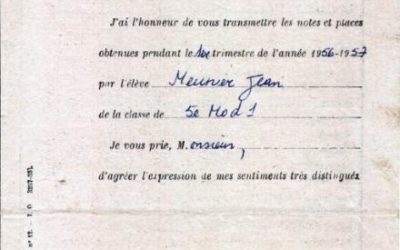 J'ai l'honneur de vous transmettre les notes et places
obtenues pendant le 1er trimestre de l'année 1956-1957
par l'élève Meunier Jean
de la classe de 5e Mod 1
Je vous prie, M. onsieur,
d'agréer l'expression de mes sentiments très distingués